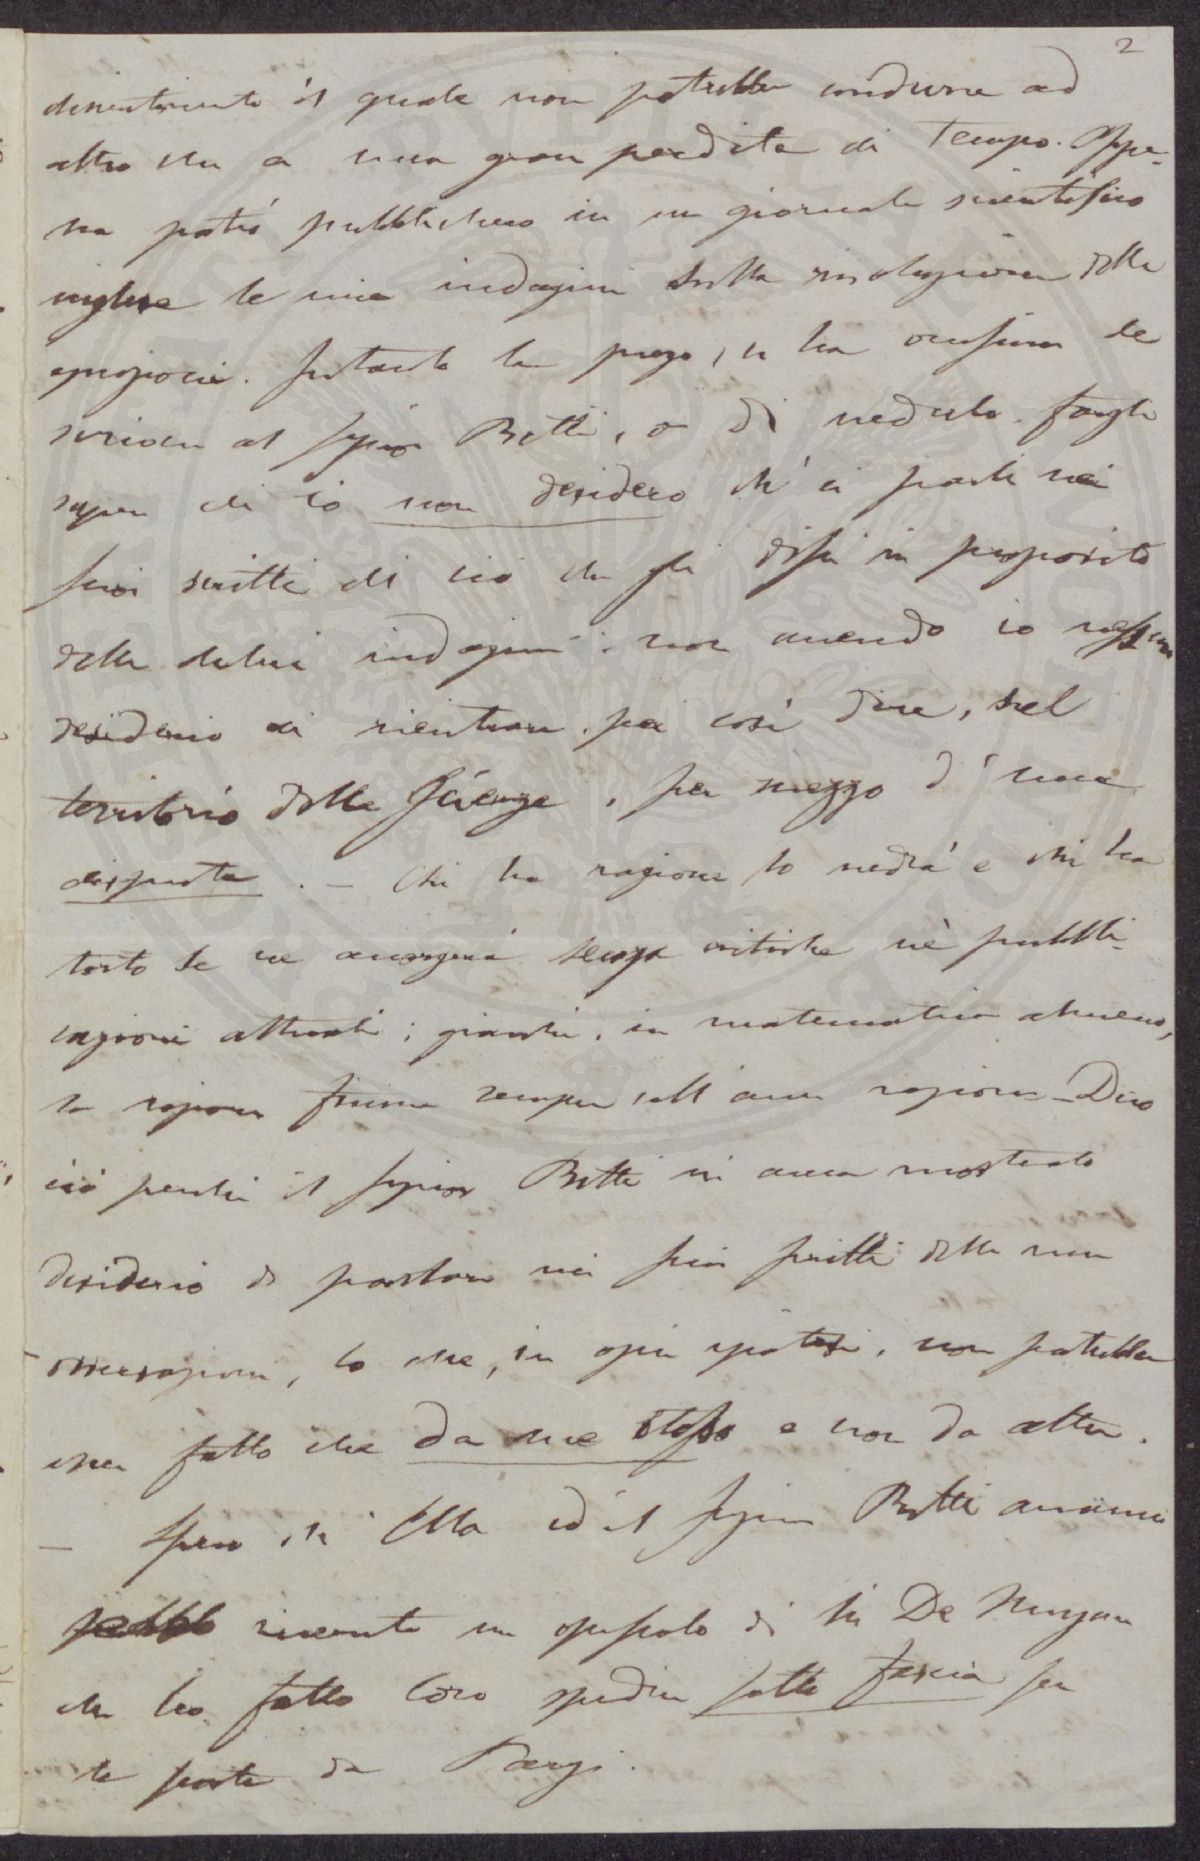 2
disentimento il quale non potrebbe condurre ad
altro che a una gran perdita di tempo. Appe-
na potrò pubblicherò in un giornale scientifico
inglese le mie indagini sulla risoluzione delle
equazioni. Pertanto la prego, se ha occasione de
scrivere al Signor Betti, o di vederlo, fargli
sapere che io non desidero ch'ei parli nei
suoi scritti di ciò che gli dissi in proposito
delle di lui indagini; non avendo io nessun
desiderio di rientrare, per così dire, nel
territorio delle Scienze, per mezzo d'una
disputa. – Chi ha ragione lo vedrà e chi ha
torto se ne accorgerà senza critiche nè pubbli-
cazioni attuali; giacchè, in matematica almeno,
la ragione finisce sempre coll'aver ragione – Dico
ciò perchè il Signor Betti mi avea mostrato
desiderio di parlare nei suoi scritti delle mie
osservazioni, lo che, in ogni ipotesi, non potrebbe
esser fatto che da me stesso e non da altri.
– Spero ch'Ella ed il Signor Betti avranno
ricevuto un opuscolo di De Morgan
che ho fatto loro spedire sotto fascia per
la posta da Parigi.